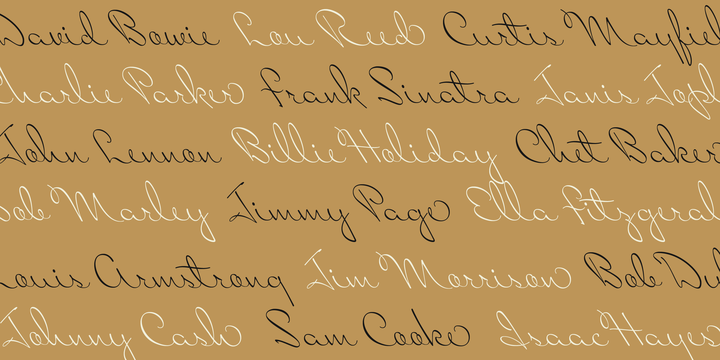 David Bowie Lou Reed Curtis Mayfiel
Charlie Parker Frank Sinatra Janis Jopl
John Lennon Billie Holiday Chet Baker
Bob Marley Jimmy Page Ella Fitzgeral
Louis Armstrong Jim Morrison Bob Dyl
Johnny Cash Sam Cooke Isaac Hayes